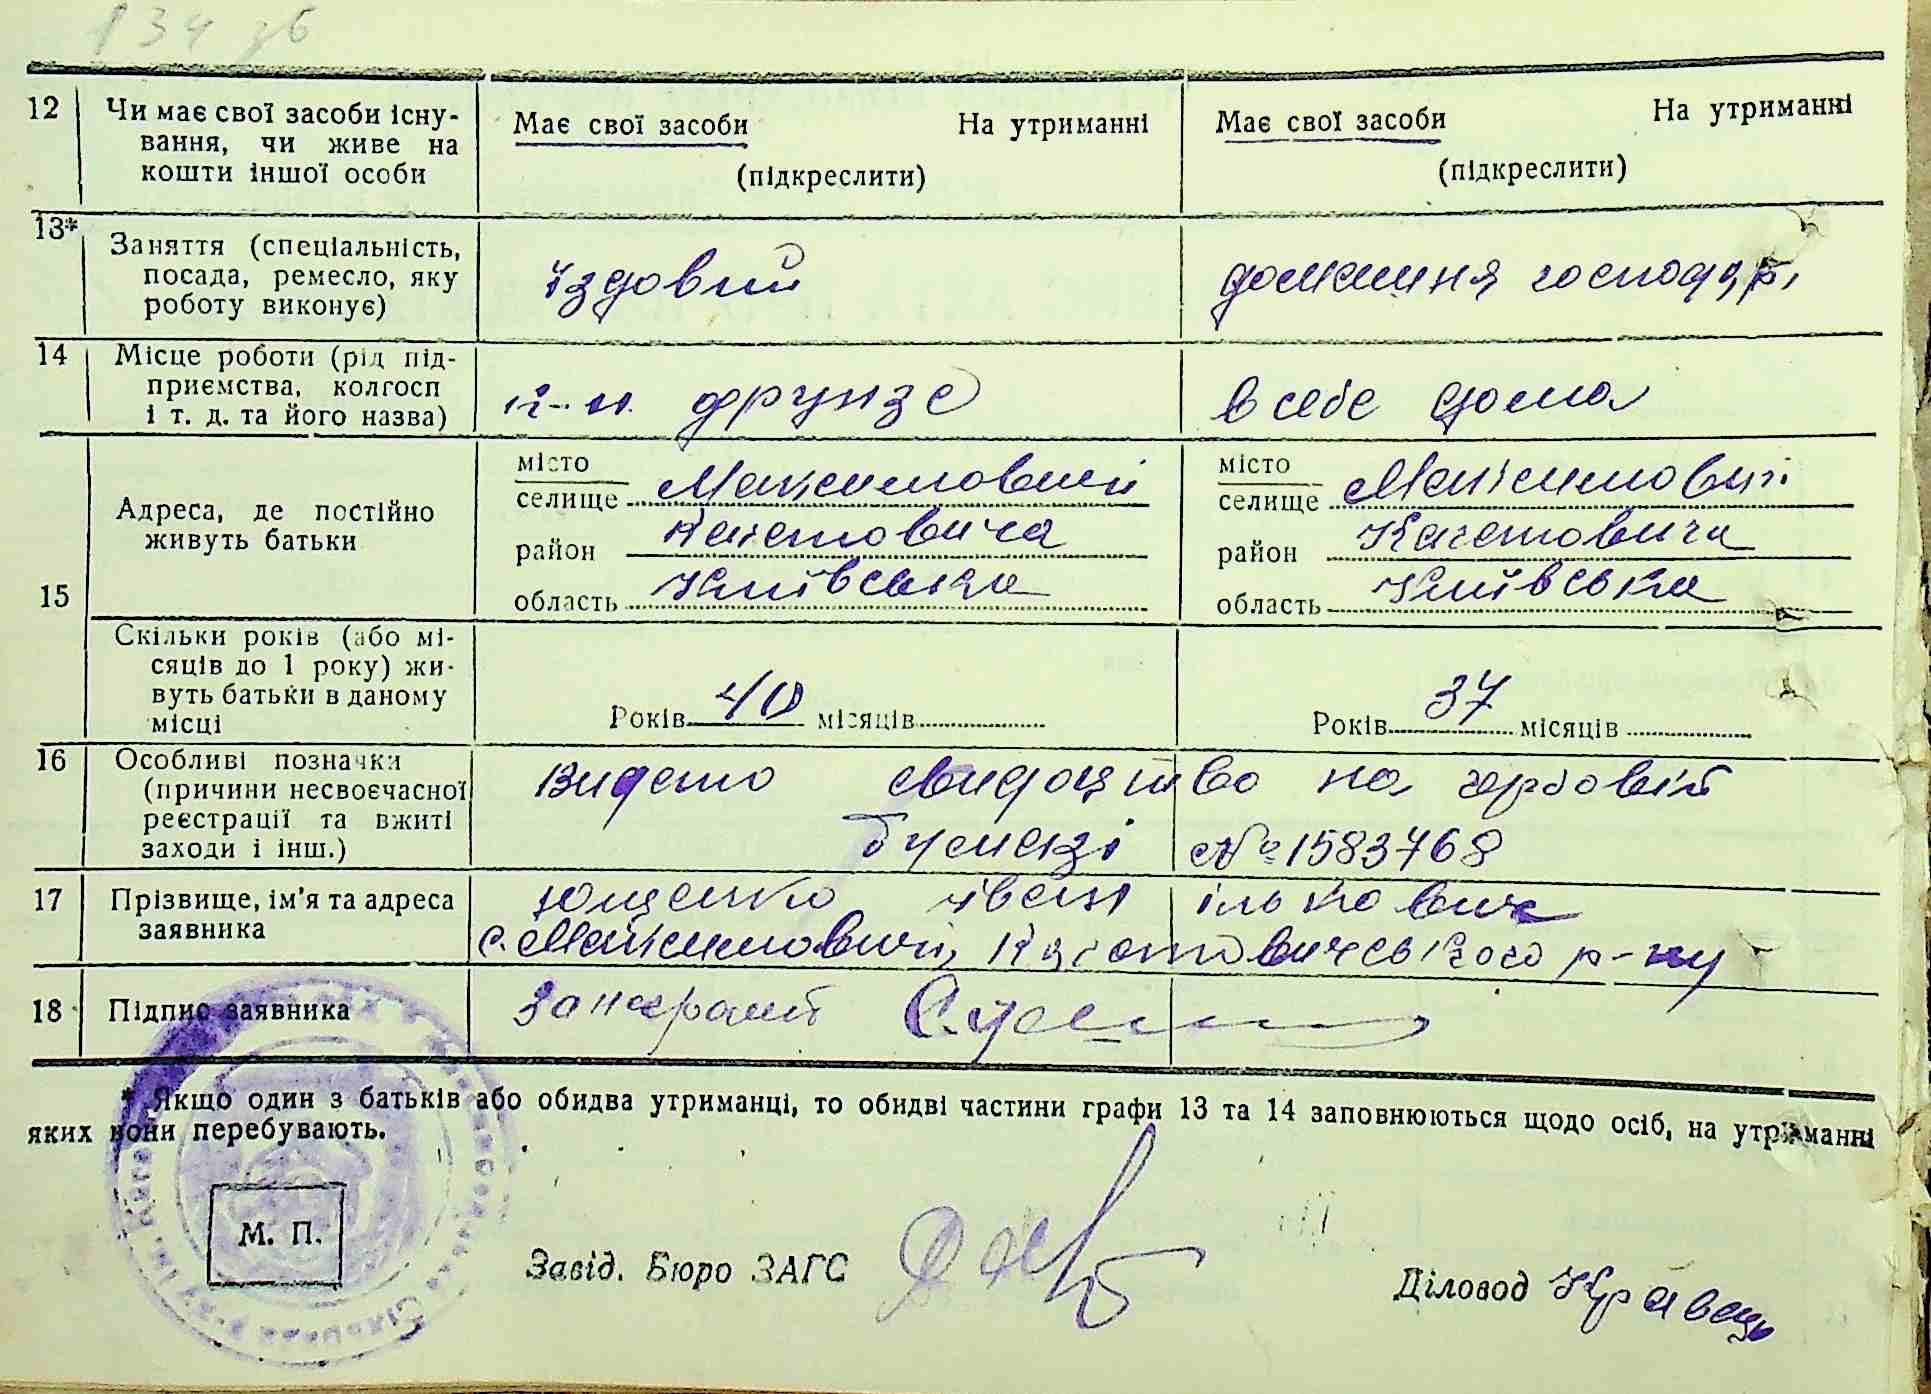 134 зб
12 Чи має свої засоби існу-
вання, чи живе на
кошти іншої особи
Має свої засоби На утриманні
(підкреслити)
Має свої засоби На утриманні
(підкреслити)
13* Заняття (спеціальність,
посада, ремесло, яку
роботу виконує)
їздовий
домашня господар.
14 Місце роботи (рід під-
приємства, колгосп
і т. д. та його назва)
к-п. фрунзе
в себе дома
15 Адреса, де постійно
живуть батьки
місто
селище Максимовичі
район Кагановича
область Київська
місто
селище Максимовичі
район Кагановича
область Київська
Скільки років (або мі-
сяців до 1 року) жи-
вуть батьки в даному
місці
Років 40 місяців
Років 37 місяців
16 Особливі позначки
(причини несвоєчасної
реєстрації та вжиті
заходи і інш.)
Видано свидоцтво на гербовій
бумазі № 1583768
17 Прізвище, ім'я та адреса
заявника
Ющенко ІванІлькович
с. Максимовичі, Кагановичського р-ну
18 Підпис заявника
* Якщо один з батьків або обидва утриманці, то обидві частини графи 13 та 14 заповнюються щодо осіб, на утриманні
яких вони перебувають.
М. П.
Завід. Бюро ЗАГС
Діловод Кравець